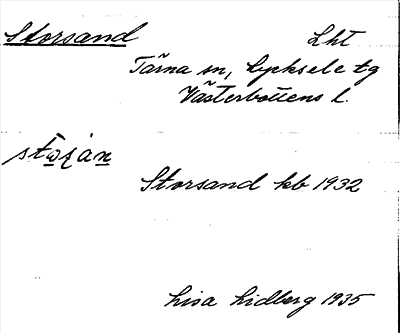 Storsand Lht
Tärna sn, Lycksele tg
Västerbottens l.
Storsand kb 1932
Lisa Lidberg 1935